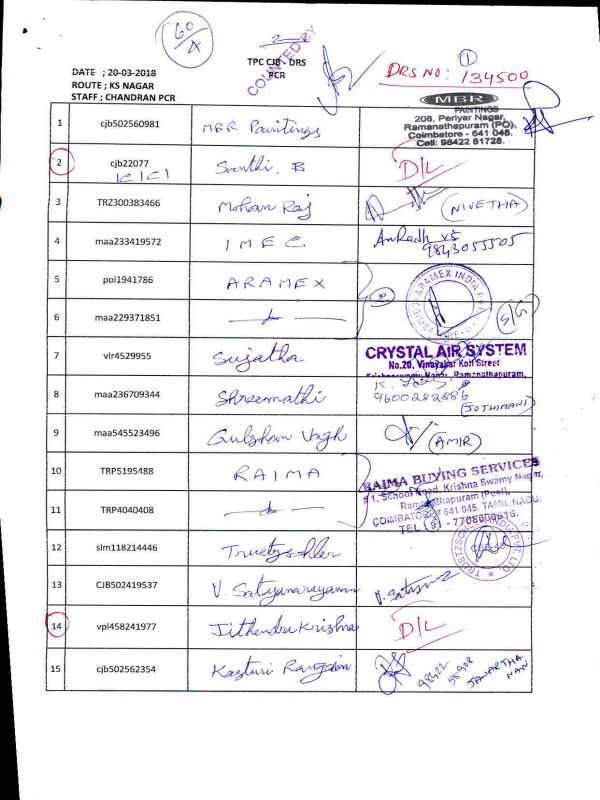 60/4
2
COUNTED BY
TPC CJB - DRS
PCR
1
DRS NO: 134500
DATE ; 20-03-2018
ROUTE ; KS NAGAR
STAFF ; CHANDRAN PCR
MBR
PAINTINGS
208, Periyar Nagar,
Ramanathapuram (PO),
Coimbatore - 641 045.
Cell: 98422 61728.
1 cjb502560981 MBR Paintings
2 cjb22077 Santhi. B D/L
KIKI
3 TRZ300383466 Mohan Raj (NIVETHA)
4 maa233419572 IMEC. AnRadh VS
9843055505
5 pol1941786 ARAMEX 2
ARAMEX INDIA
6 maa229371851 S/G
7 vlr4529955 Sujatha CRYSTAL AIR SYSTEM
No.20, Vinayakar Koil Street
Krishnaswamy Nagar, Ramanathapuram,
8 maa236709344 Shreemathi K.
9600282886
(JOTHIMANI)
9 maa545523496 Gulshan Vagh (AMIR)
10 TRP5195488 RAIMA RAIMA BUYING SERVICES
# 1, School Road, Krishna Swamy Nagar,
Ramanathapuram (Post),
11 TRP4040408 COIMBATORE - 641 045. TAMIL NADU.
TEL (91) - 7708600616.
12 slm118214446 Truetzschler TRUETZSCHLER INDIA PVT. LTD.
13 CJB502419537 V. Satyanarayanan V. Satyana
14 vpl458241977 Jithendra Krishna D/L
15 cjb502562354 Kasturi Rangan 98422
58908
JANARTHA
NAN